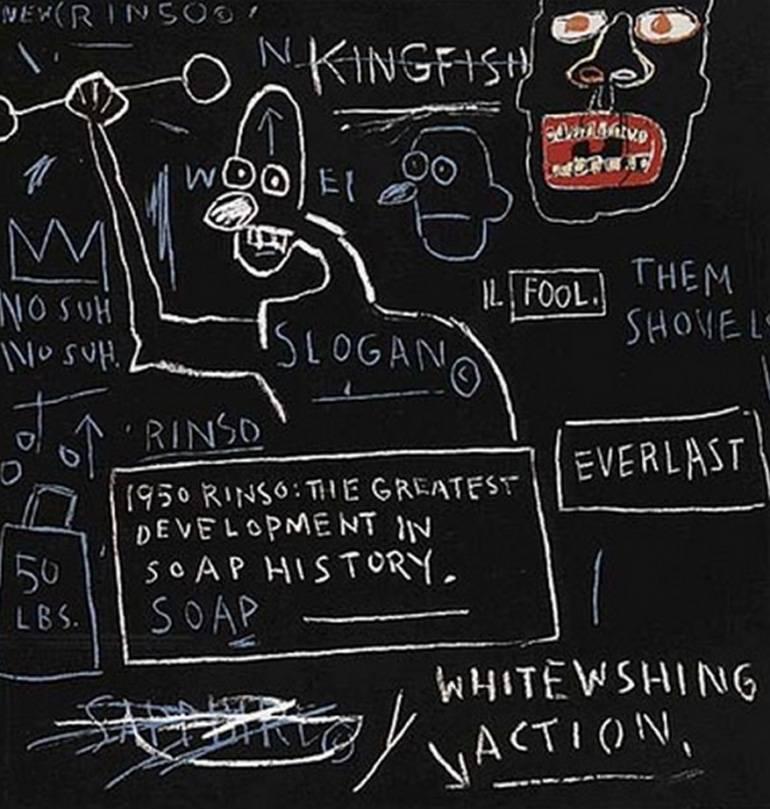 NEW(RINSO®)
N KINGFISH
W EI
NO SUH
NO SUH.
SLOGAN©
IL FOOL.
THEM
SHOVELS
RINSO
EVERLAST
1950 RINSO: THE GREATEST
DEVELOPMENT IN
SOAP HISTORY.
SOAP
50
LBS.
WHITEWSHING
ACTION.